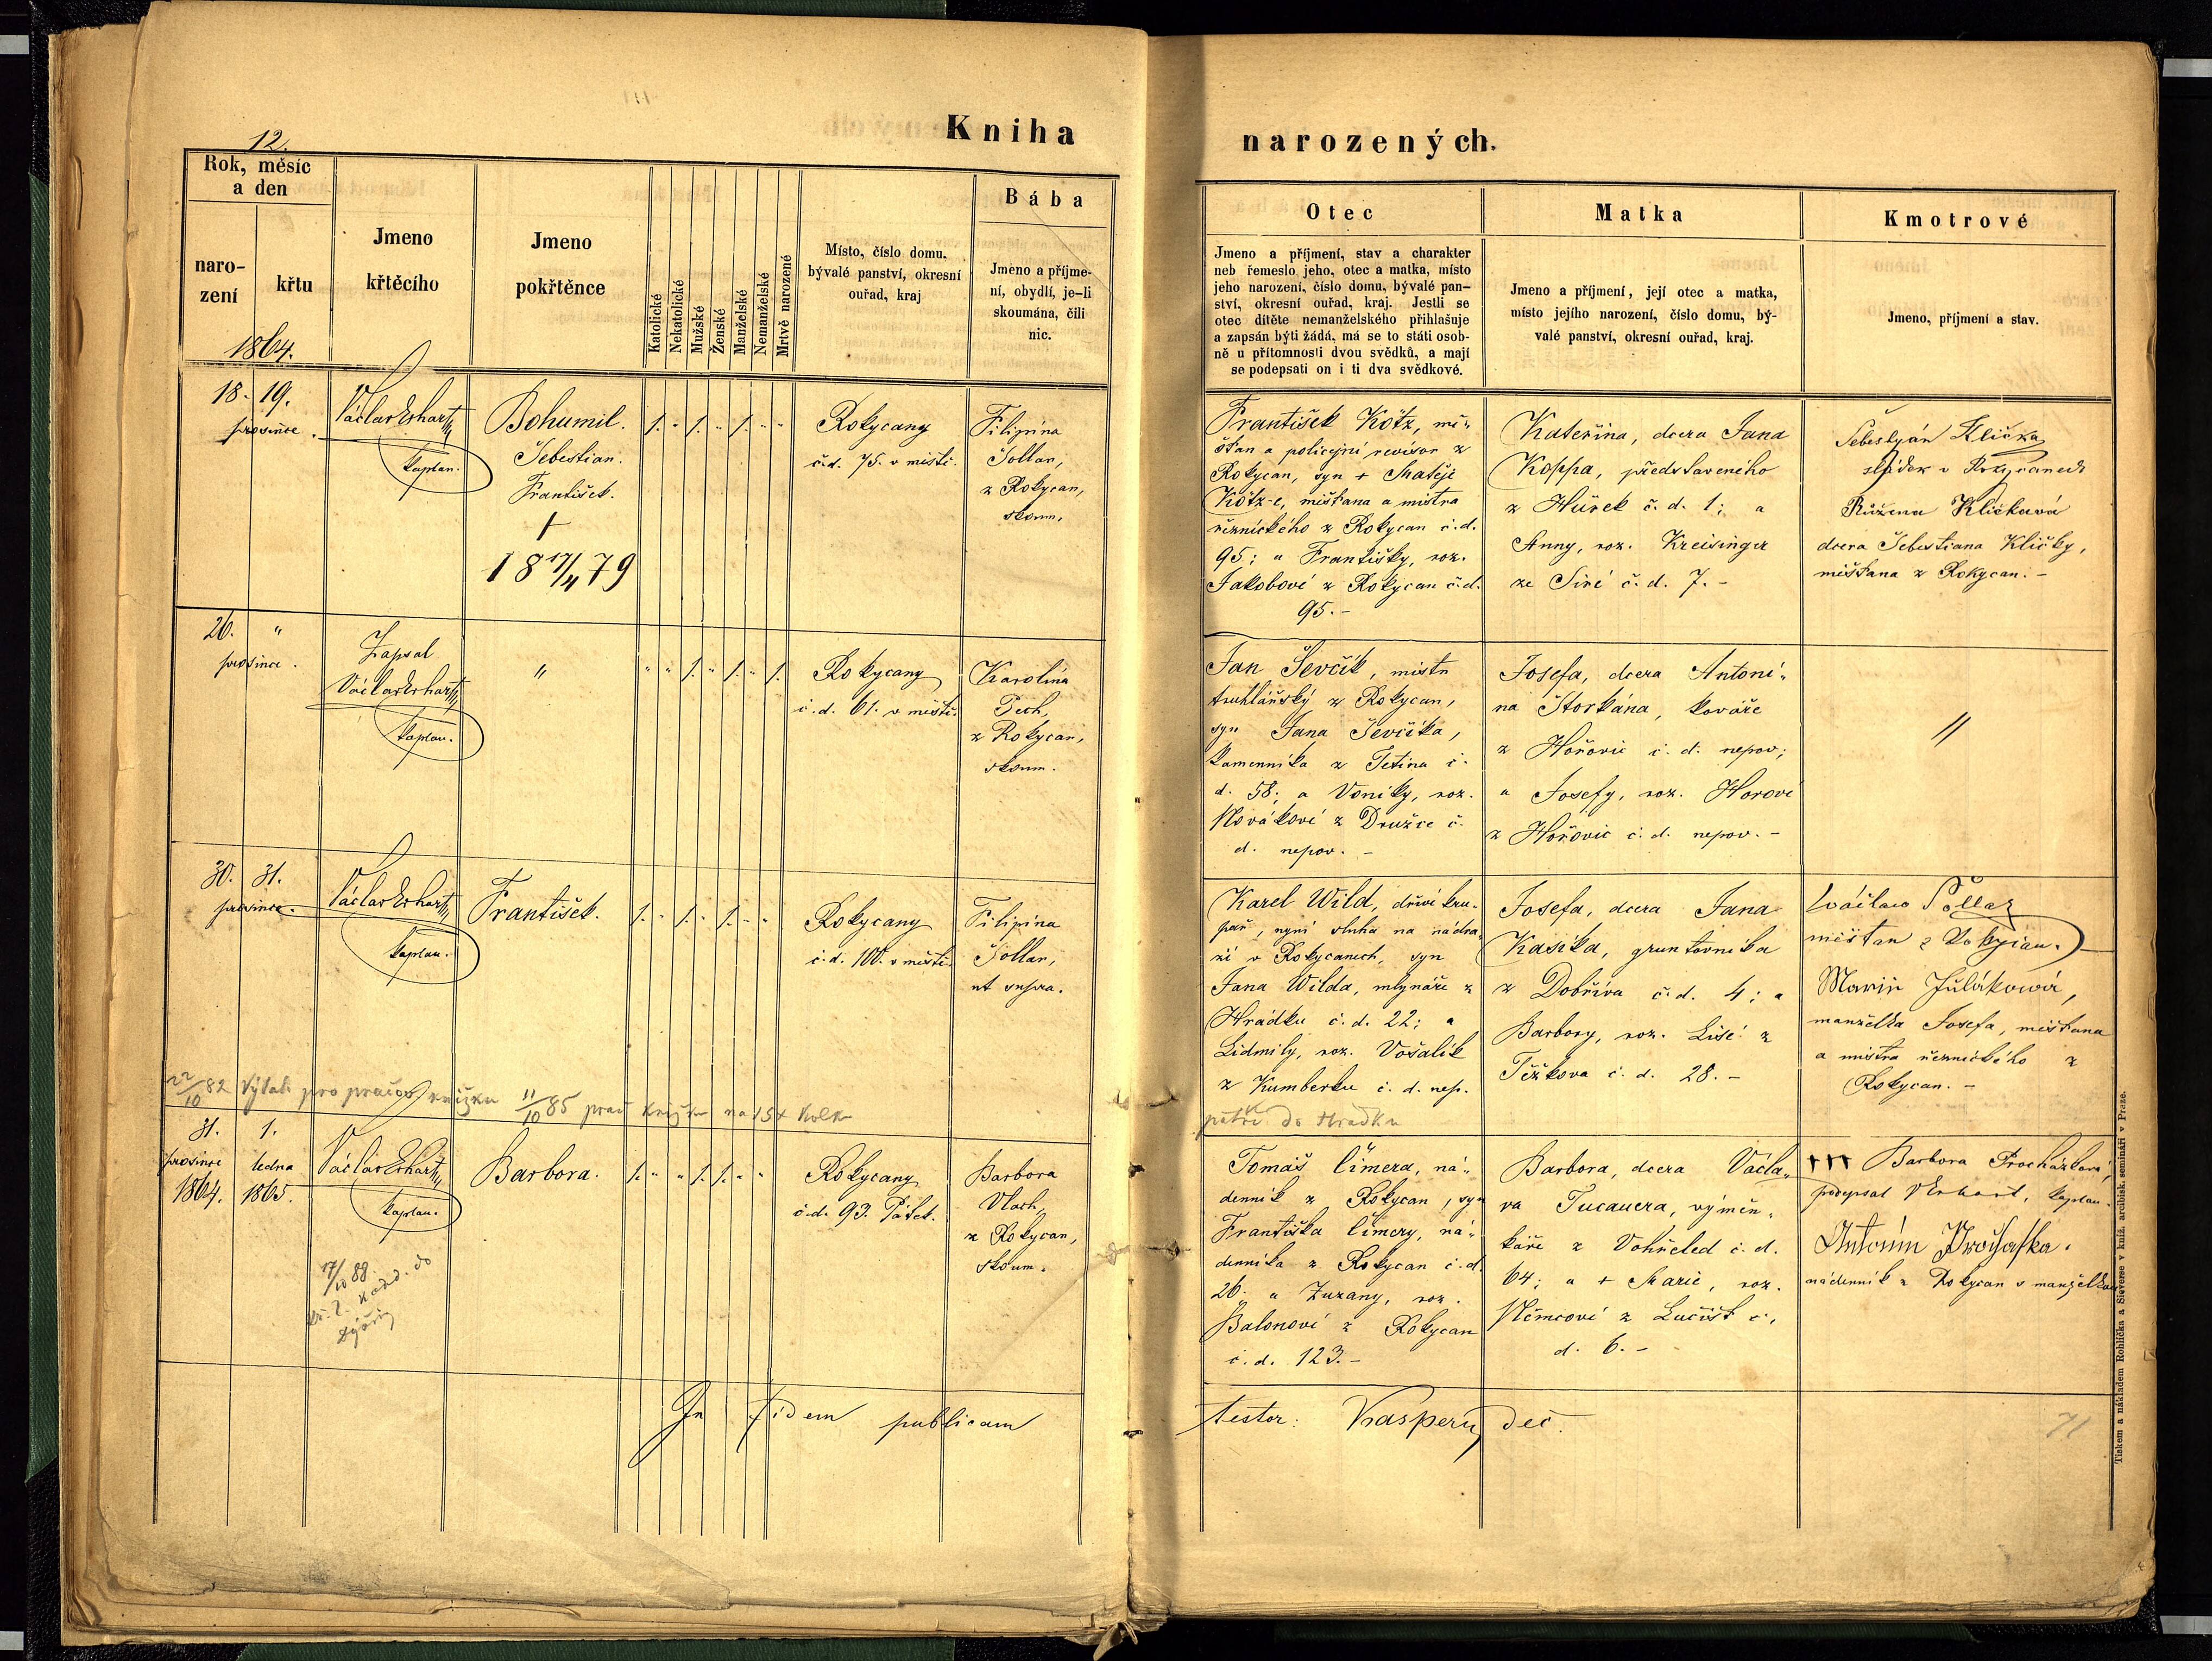 12.
Kniha
narozených.
Rok, měsíc
a den
naro-
zení
křtu
1864.
Jmeno
křtěcího
Jmeno
pokřtěnce
Katolické
Nekatolické
Mužské
Ženské
Manželské
Nemanželské
Mrtvě narozené
Místo, číslo domu,
bývalé panství, okresní
ouřad, kraj
Bába
Jmeno a příjme-
ní, obydlí, je-li
skoumána, čili
nic.
Otec
Jmeno a příjmení, stav a charakter
neb řemeslo jeho, otec a matka, místo
jeho narození, číslo domu, bývalé pan-
ství, okresní ouřad, kraj. Jestli se
otec dítěte nemanželského přihlašuje
a zapsán býti žádá, má se to státi osob-
ně u přítomnosti dvou svědků, a mají
se podepsati on i ti dva svědkové.
Matka
Jmeno a příjmení, její otec a matka,
místo jejího narození, číslo domu, bý-
valé panství, okresní ouřad, kraj.
Kmotrové
Jmeno, příjmení a stav.
18. 19.
prosince.
Václav Erhart
kaplan.
Bohumil.
Šebestian.
František.
+
18 17/4 79
1. " 1. " 1. " "
Rokycany
č.d. 75. v městě.
Filipina
Šollar,
z Rokycan,
skoum.
František Kötz, mě-
šťan a policejní revisor z
Rokycan, syn + Matěje
Kötz-e, měšťana a mistra
řeznického z Rokycan č.d.
95; a Františky, roz.
Jakobové z Rokycan č.d.
95.-
Kateřina, dcera Jana
Koppa, představeného
z Hůrek č. d. 1; a
Anny, roz. Kreisinger
ze Siré č. d. 7. -
Šebestyán Klička
sládek v Rokycanech
Růžena Kličková
dcera Šebestiana Kličky,
měšťana z Rokycan. -
26. "
prosince.
Zapsal
Václav Erhart
kaplan.
"
" " 1. " 1. " 1.
Rokycany
č. d. 61. v městě.
Karolina
Pech,
z Rokycan,
skoum.
Jan Ševčík, mistr
truhlářský z Rokycan,
syn Jana Ševčíka,
kamenníka z Tetína č.
d. 58; a Veroniky, roz.
Novákové z Družce č.
d. nepov. -
Josefa, dcera Antoní-
na Štorkána, kováře
z Hořovic č. d. nepov;
a Josefy, roz. Horové
z Hořovic č. d. nepov. -
"
30. 31.
prosince.
Václav Erhart
kaplan.
František.
1. " 1. " 1. " "
Rokycany
č. d. 100. v městě
Filipina
Šollar,
ut supra.
Karel Wild, dříví kru-
pař, nyní sluha na nádra-
ží v Rokycanech, syn
Jana Wilda, mlynáře z
Hrádku č. d. 22; a
Lidmily, roz. Vošalík
z Kumberku č. d. nep.
patří do Hrádku
Josefa, dcera Jana
Kasíka, gruntovníka
z Dobříva č. d. 4; a
Barbory, roz. Lišé z
Těžkova č. d. 28. -
Wáclaw Šollar
měšťan z Rokycan.
Marie Julákowá,
manželka Josefa, měšťana
a mistra řeznického z
Rokycan. -
22/10 82 Výtah pro pracov knížku 11/10 85 prac knížku na 15x kolk
31. 1.
prosince ledna
1864. 1865.
Václav Erhart
kaplan.
Barbora.
1. " " 1. 1. " "
Rokycany
č.d. 93. Pátek.
Barbora
Vlach,
z Rokycan,
skoum.
17/10 88
Tomáš Čimera, ná-
denník z Rokycan, syn
Františka Čimery, ná-
denníka z Rokycan č.d.
26. a Zuzany, roz.
Balonové z Rokycan
č. d. 123. -
Barbora, dcera Václa-
va Tucauera, výměn-
káře z Vohřeled č. d.
64; a + Marie, roz.
Němcové z Lučišť č.
d. 6. -
+++ Barbora Procházková,
podepsal VErhart, kaplan.
Antonín Procháska.
nádenník z Rokycan s manželkou
In fidem publicam
testor: Kaspery dec.
71
Tiskem a nákladem Rohlíčka a Sieverse v kníž. arcibisk. semináři v Praze.